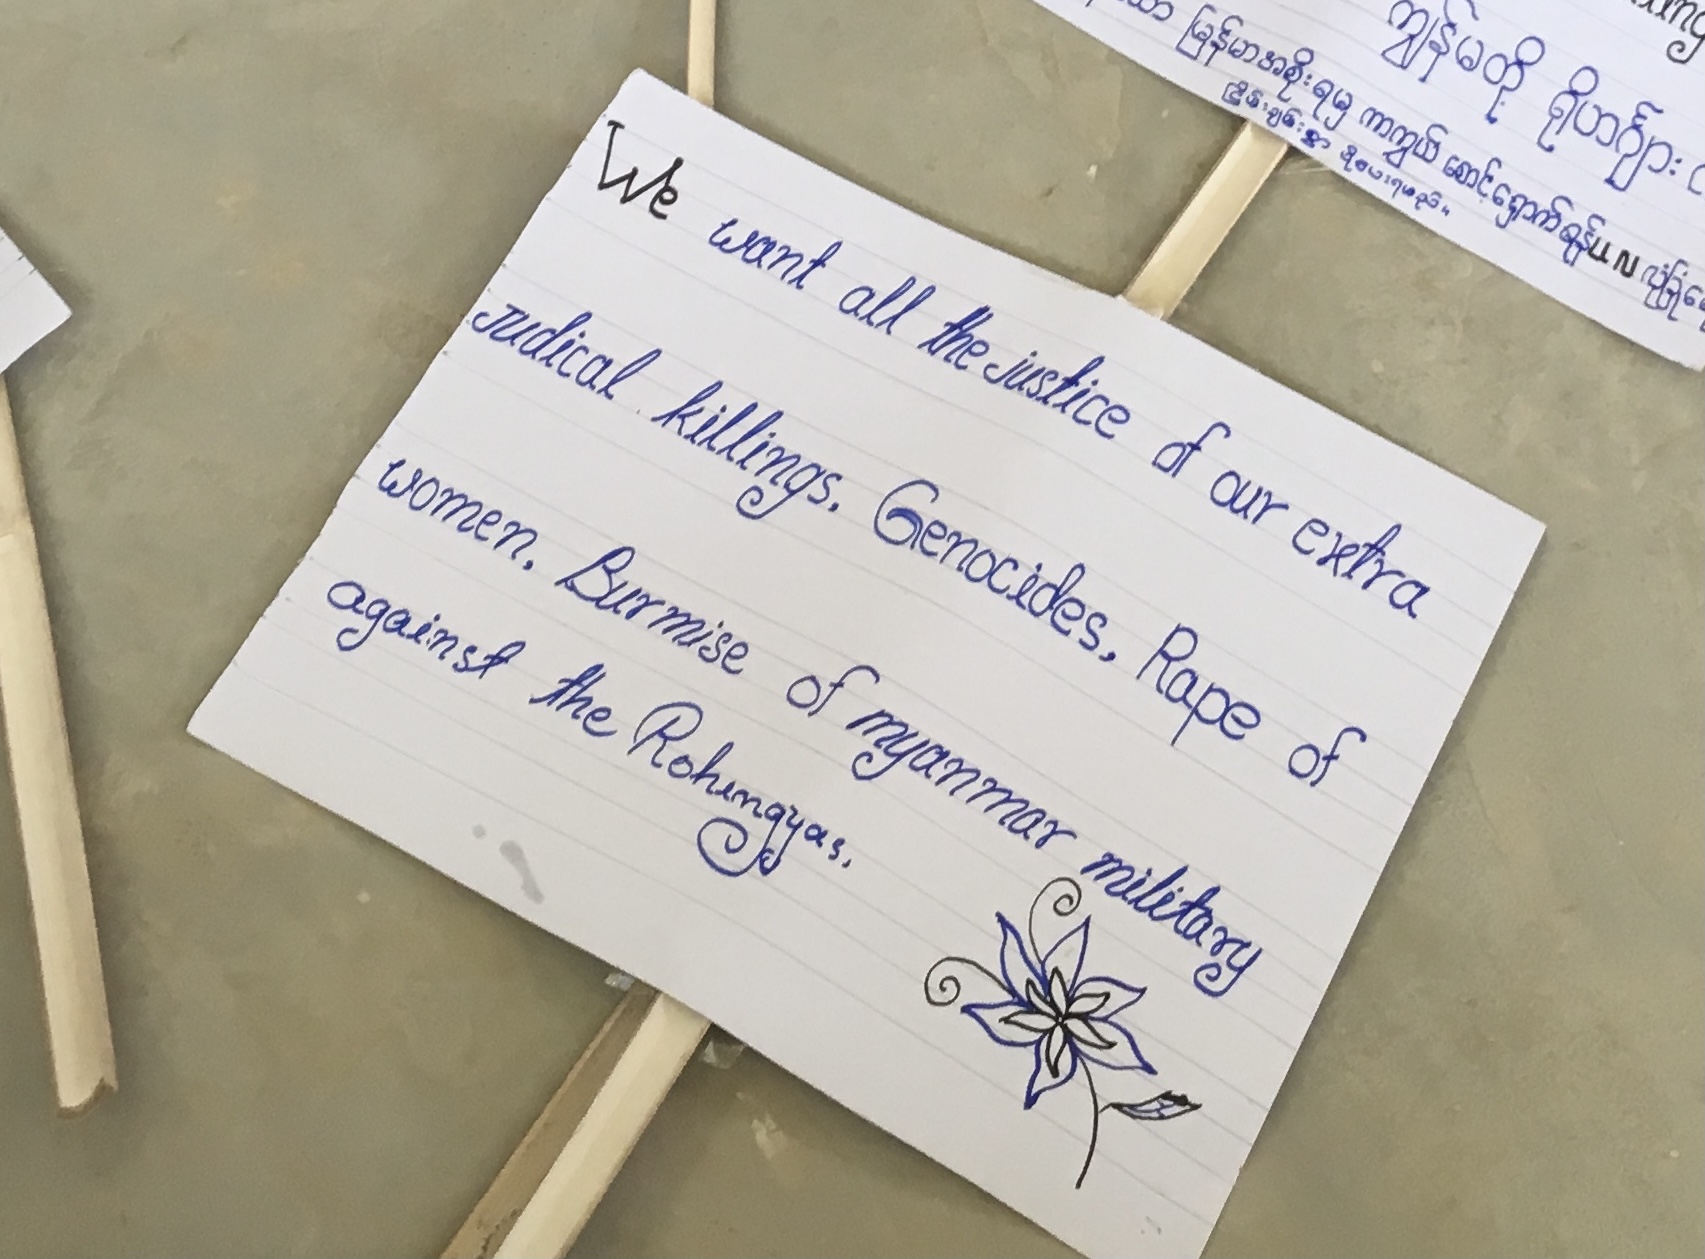 We want all the justice of our extra
Judical killings. Genocides, Rape of
women. Burmise of myanmar military
against the Rohingyas.
ကျွန်မတို့ ရိုဟင်ဂျား
မြန်မာအစိုးရမှ ကာကွယ် စောင့်ရှောက်ရန်